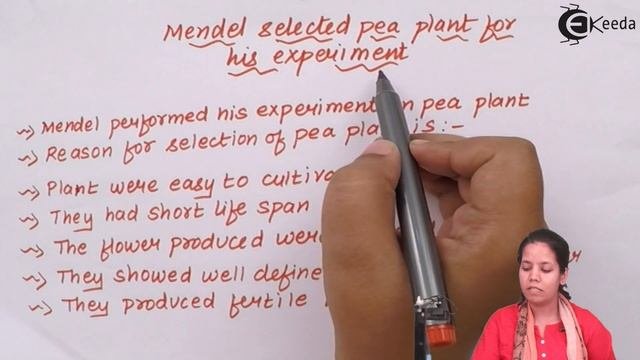 Mendel selected pea plant for
his experiment
Keeda
~> Mendel performed his experiment on pea plant
~> Reason for selection of pea plant is :-
~> Plant were easy to
~> They had short life span
~> The flower produced were
~> They showed well
~> They produced fertile